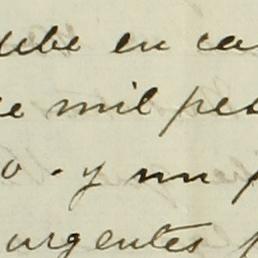 debe en ca
e mil pes
o - y un p
urgentes p